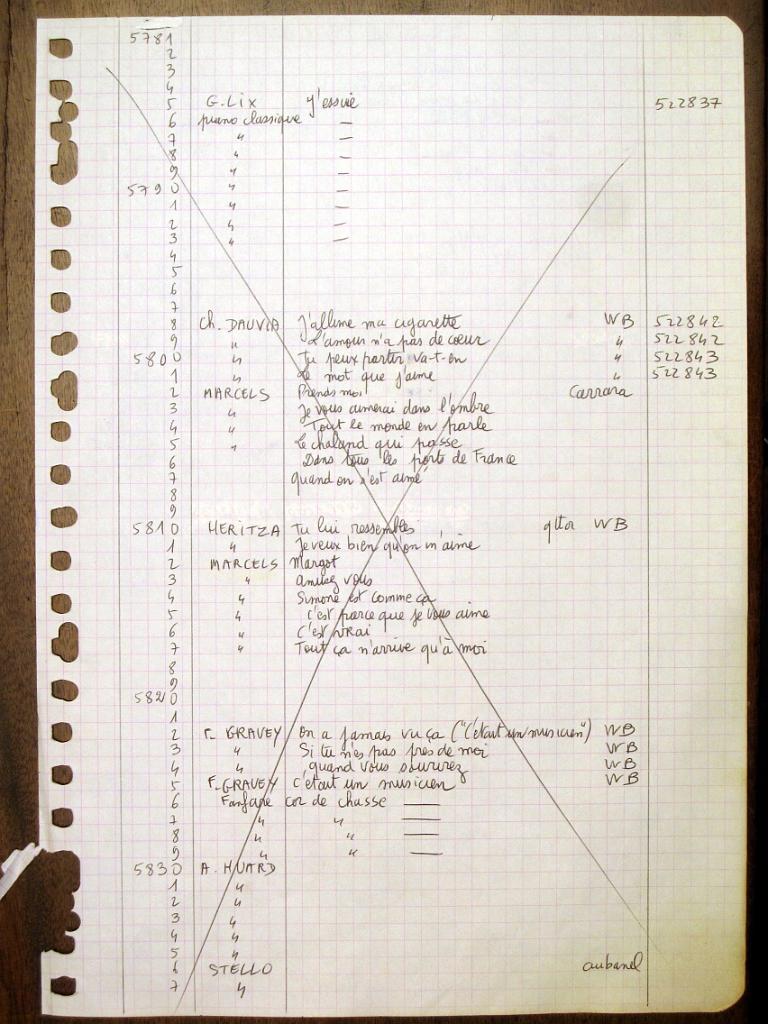 5781
2
3
4
5 G. Lix J'essuie 522837
6 piano classique —
7 " —
8 " —
9 " —
5790 " —
1 " —
2 " —
3 " —
4
5
6
7
8 Ch. DAUVIA J'allume ma cigarette WB 522842
9 " L'amour n'a pas de cœur " 522842
5800 " Tu peux partir va-t-en " 522843
1 " Le mot que j'aime " 522843
2 MARCELS Prends moi Carrara
3 " Je vous aimerai dans l'ombre
4 " Tout le monde en parle
5 " Le chaland qui passe
6 Dans tous les ports de France
7 quand on s'est aimé
8
9
5810 HERITZA Tu lui ressembles qtta WB
1 " Je veux bien qu'on m'aime
2 MARCELS Margot
3 " Amusez vous
4 " Simone est comme ça
5 " C'est parce que je vous aime
6 " C'est vrai
7 " Tout ça n'arrive qu'à moi
8
9
5820
1
2 F. GRAVEY On a jamais vu ça ("C'était un musicien") WB
3 " Si tu n'es pas près de moi WB
4 " quand vous sourirez WB
5 F. GRAVEY C'était un musicien WB
6 Fanfare cor de chasse —
7 " " —
8 " " —
9 " " —
5830 A. HUARD
1 "
2 "
3 "
4 "
5 "
6 STELLO aubanel
7 "